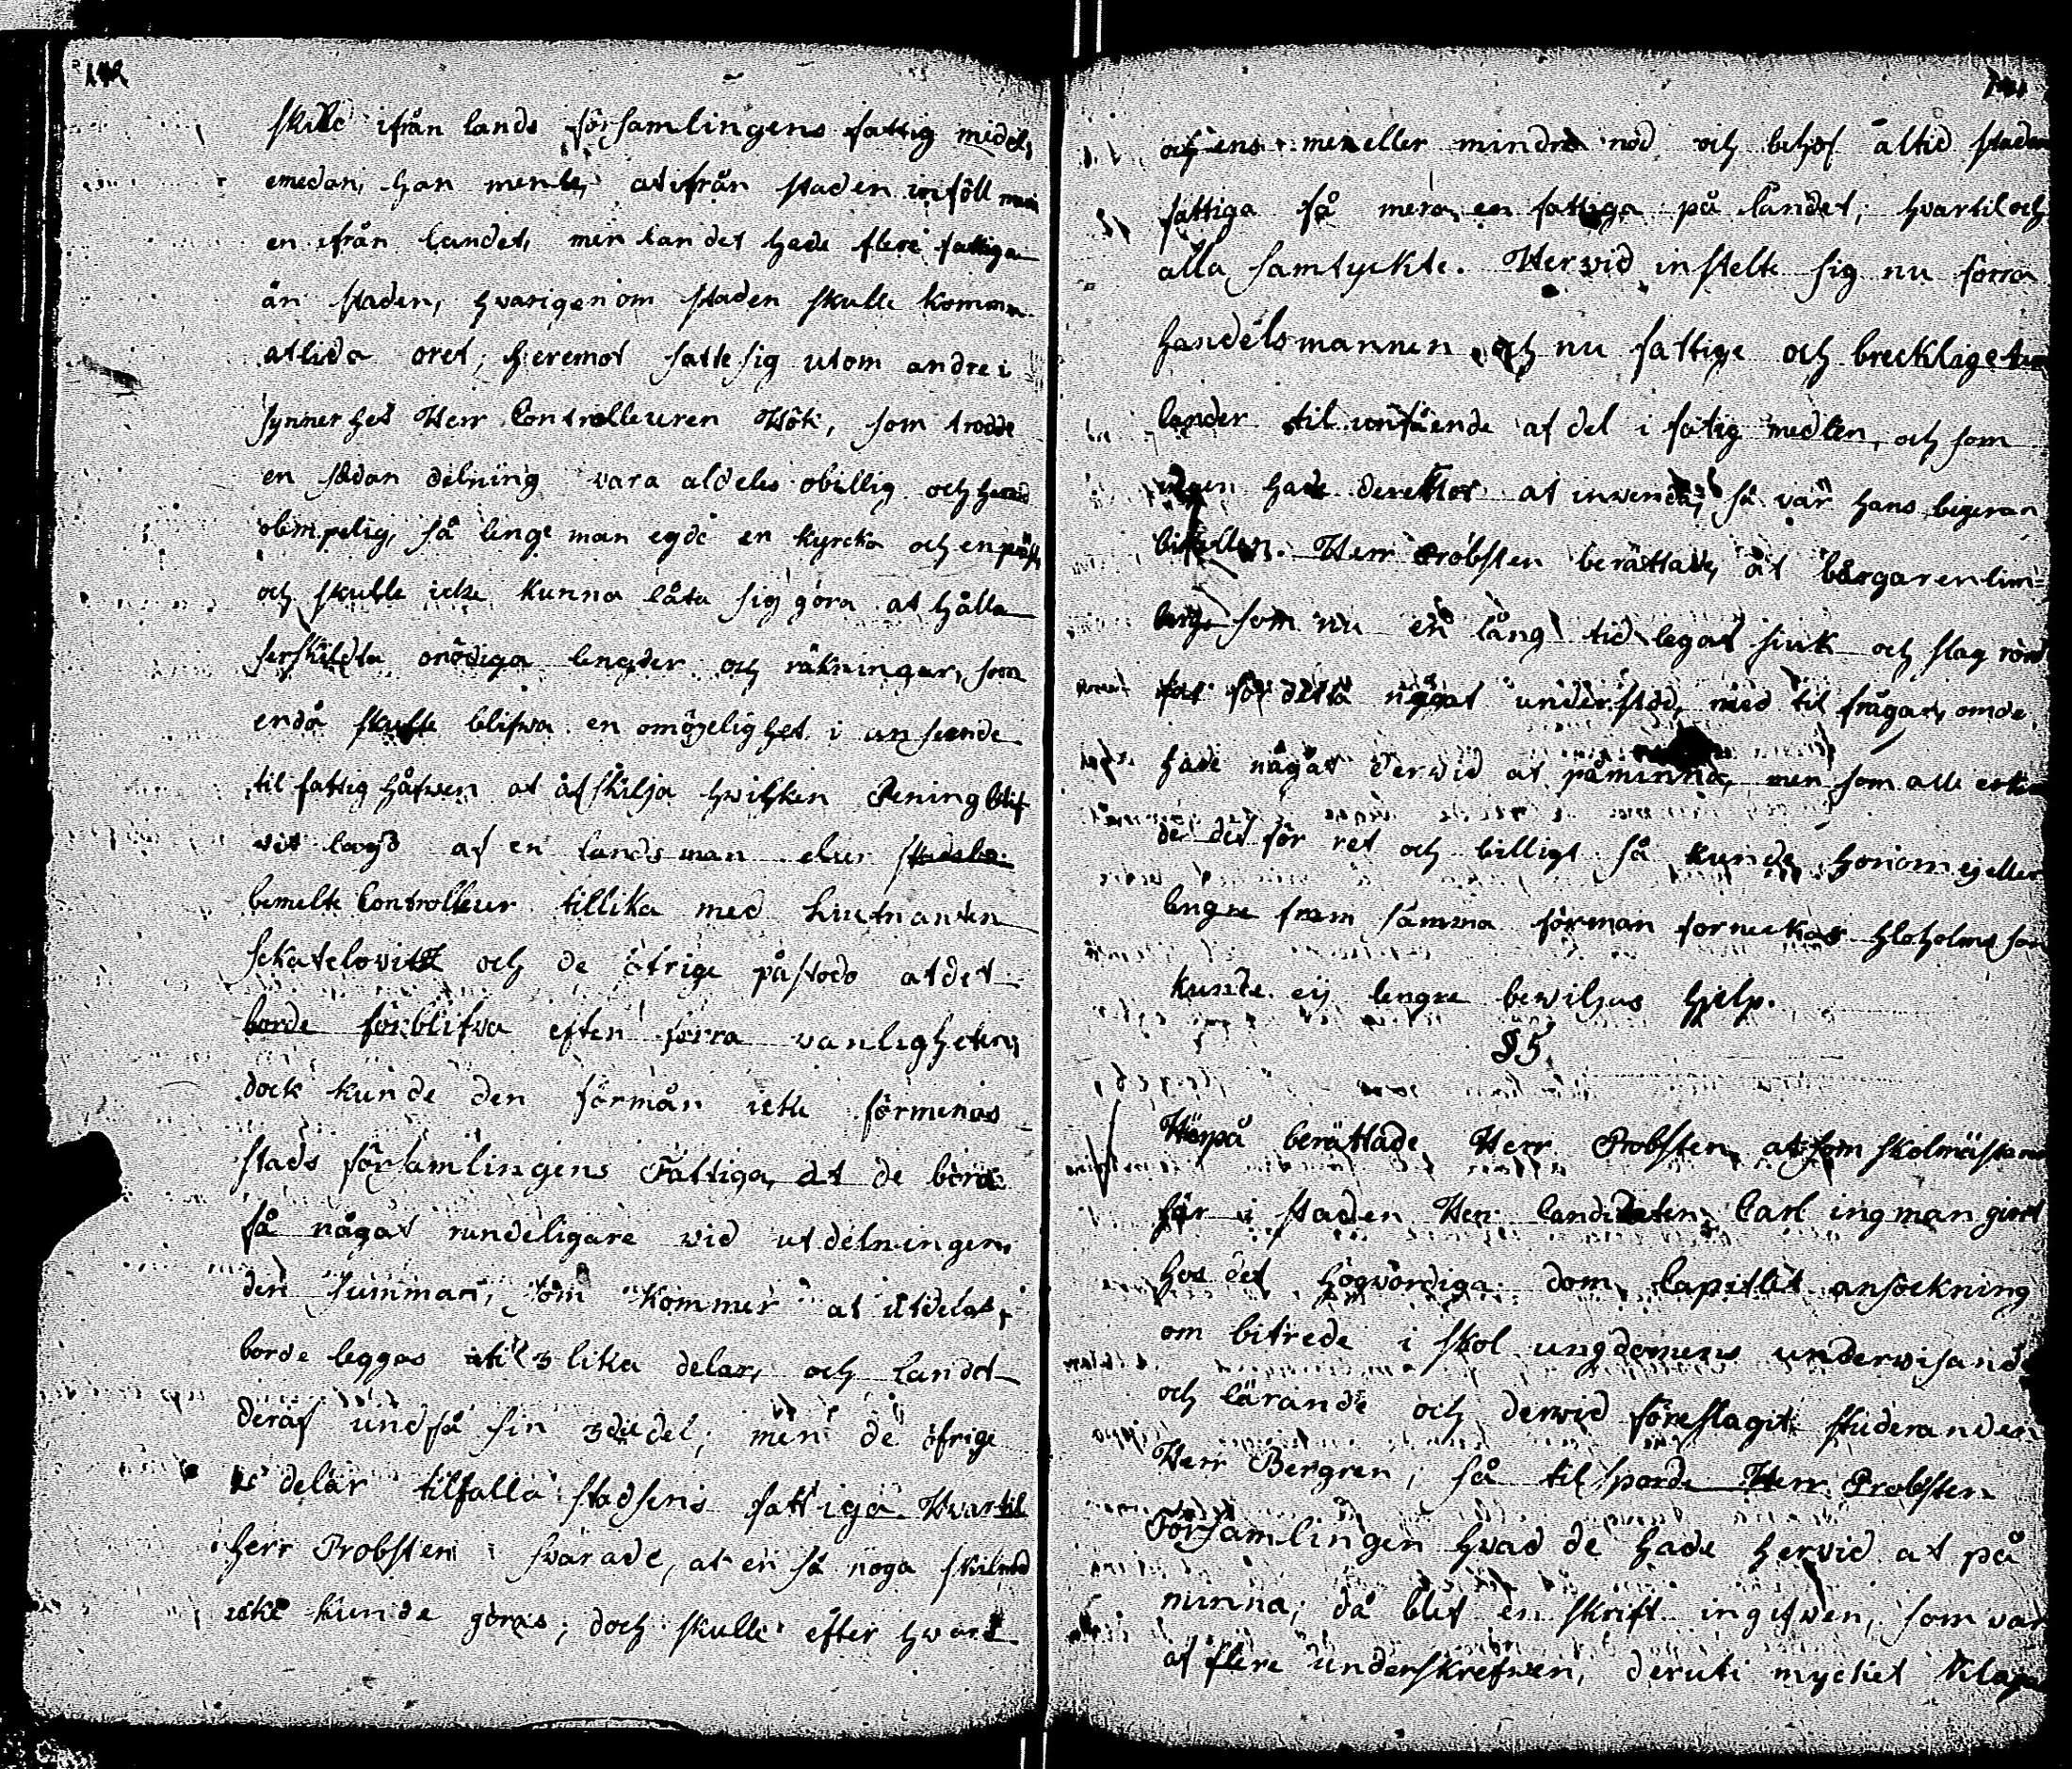 skild ifrån lands församlingens fattig medel,
emedan, han mente, at ifrån staden inföll mera
en ifrån landet, men landet hade flere fattiga
än staden, hvarigenom staden skulle komma
at lida oret; heremot satte sig utom andre i
synnerhet Herr Controlleuren Höök, som trodde
en sådan delning vara aldeles obillig och
olimpelig, så lenge man egde en kyrcka och en
och skulle icke kunna låta sig göra at hålla
serskildta onödiga lengder och räkningar, som
endå skulle blifwa en omöjelighet i anseende
til fattig håfwen at åfskilja hwilken Pening blif
vit lagd af en landsman eller
bemelte Controlleur tillika med Liutnanten
Sckatelovitz och de öfrige påstodo at det
borde förblifva efter förra vanligheten,
dock kunde den förmån icke förmenas
stads församlingens Fattiga, at de böra
få något rundeligare wid utdelningen,
den summan, som kommer at utdelas,
borde leggas uti 3 lika delar, och landet
deraf undfå sin 3die del; men de öfrige
2 delar tilfalla stadsens fattiga. Hvartil
herr Probsten svarade, at en så noga skilnad
icke kunde göras; doch skulle efter hvars
och ens mer eller mindre nöd och behof altid staden
fattiga få mera en fattiga på landet; hvartil och
alla samtyckte. Herwid instelte sig nu förra
handelsmannen och nu fattige och brecklige
lander til undfående af del i fatig medlen, och som
ingen hade deremot at inwenda, så var hans begeran
bifallen. Herr Probsten berättade, at bårgaren lim-
berg som nu en lång tid legat siuk och slag rörd
fat för detta något understöd, med til frågan, om de
hade något derwid at påminna, men som alle erken
de det för ret och billigt så kunde honom ej eller
lengre fram samma förmån förneckas
kunde ej lengre bewiljas hjelp.
§ 5.
Härpå berättade Herr Probsten, at som skolmästaren
här i staden Herr Candidaten Carl ingman giort
hos det högvördiga dom Capitlet ansöckning
om bitrede i skol ungdomens underwisande
och lärande och derwid föreslagit studeranden
Herr Bergren, så til sporde Herr Probsten
Församlingen hvad de hade hervid at på
minna; då blef en skrift ingifwen, som var
af flere underskrefwen, deruti mycket klaga